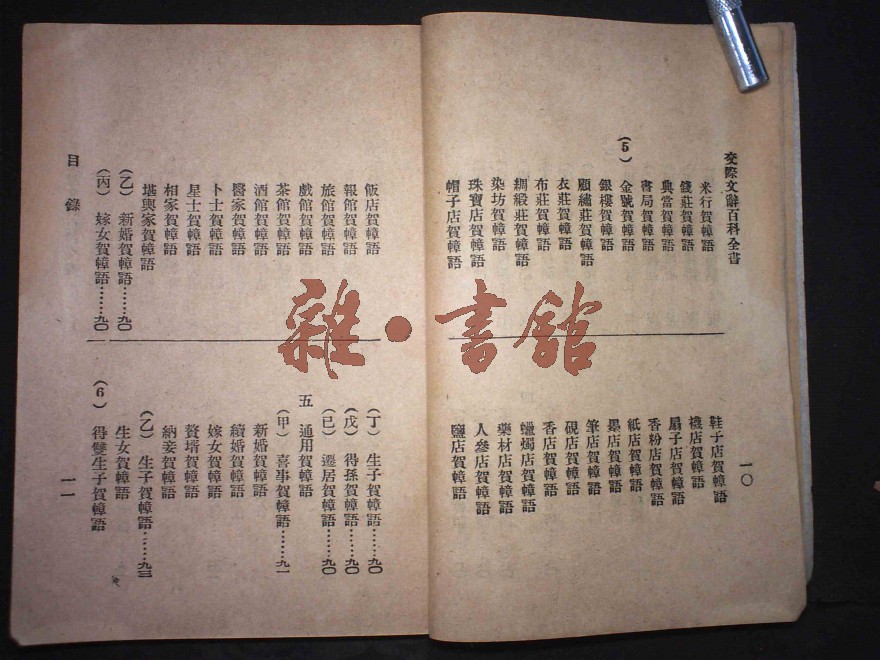 交際文辭百科全書
米行賀幛語
錢莊賀幛語
典當賀幛語
書局賀幛語
(5) 金號賀幛語
銀樓賀幛語
顧繡莊賀幛語
衣莊賀幛語
布莊賀幛語
綢緞莊賀幛語
染坊賀幛語
珠寶店賀幛語
帽子店賀幛語
一〇
鞋子店賀幛語
襪店賀幛語
扇子店賀幛語
香粉店賀幛語
紙店賀幛語
墨店賀幛語
筆店賀幛語
硯店賀幛語
香店賀幛語
蠟燭店賀幛語
藥材店賀幛語
人參店賀幛語
鹽店賀幛語
飯店賀幛語
報館賀幛語
旅館賀幛語
戲館賀幛語
茶館賀幛語
酒館賀幛語
醫家賀幛語
卜士賀幛語
星士賀幛語
相家賀幛語
堪輿家賀幛語
(乙) 新婚賀幛語……九〇
(丙) 嫁女賀幛語……九〇
(丁) 生子賀幛語……九〇
(戊) 得孫賀幛語……九〇
(已) 遷居賀幛語……九〇
五 通用賀幛語
(甲) 喜事賀幛語……九一
新婚賀幛語
續婚賀幛語
嫁女賀幛語
贅壻賀幛語
納妾賀幛語
(乙) 生子賀幛語……九三
生女賀幛語
(6) 得雙生子賀幛語
目錄
一一
雜·書舘